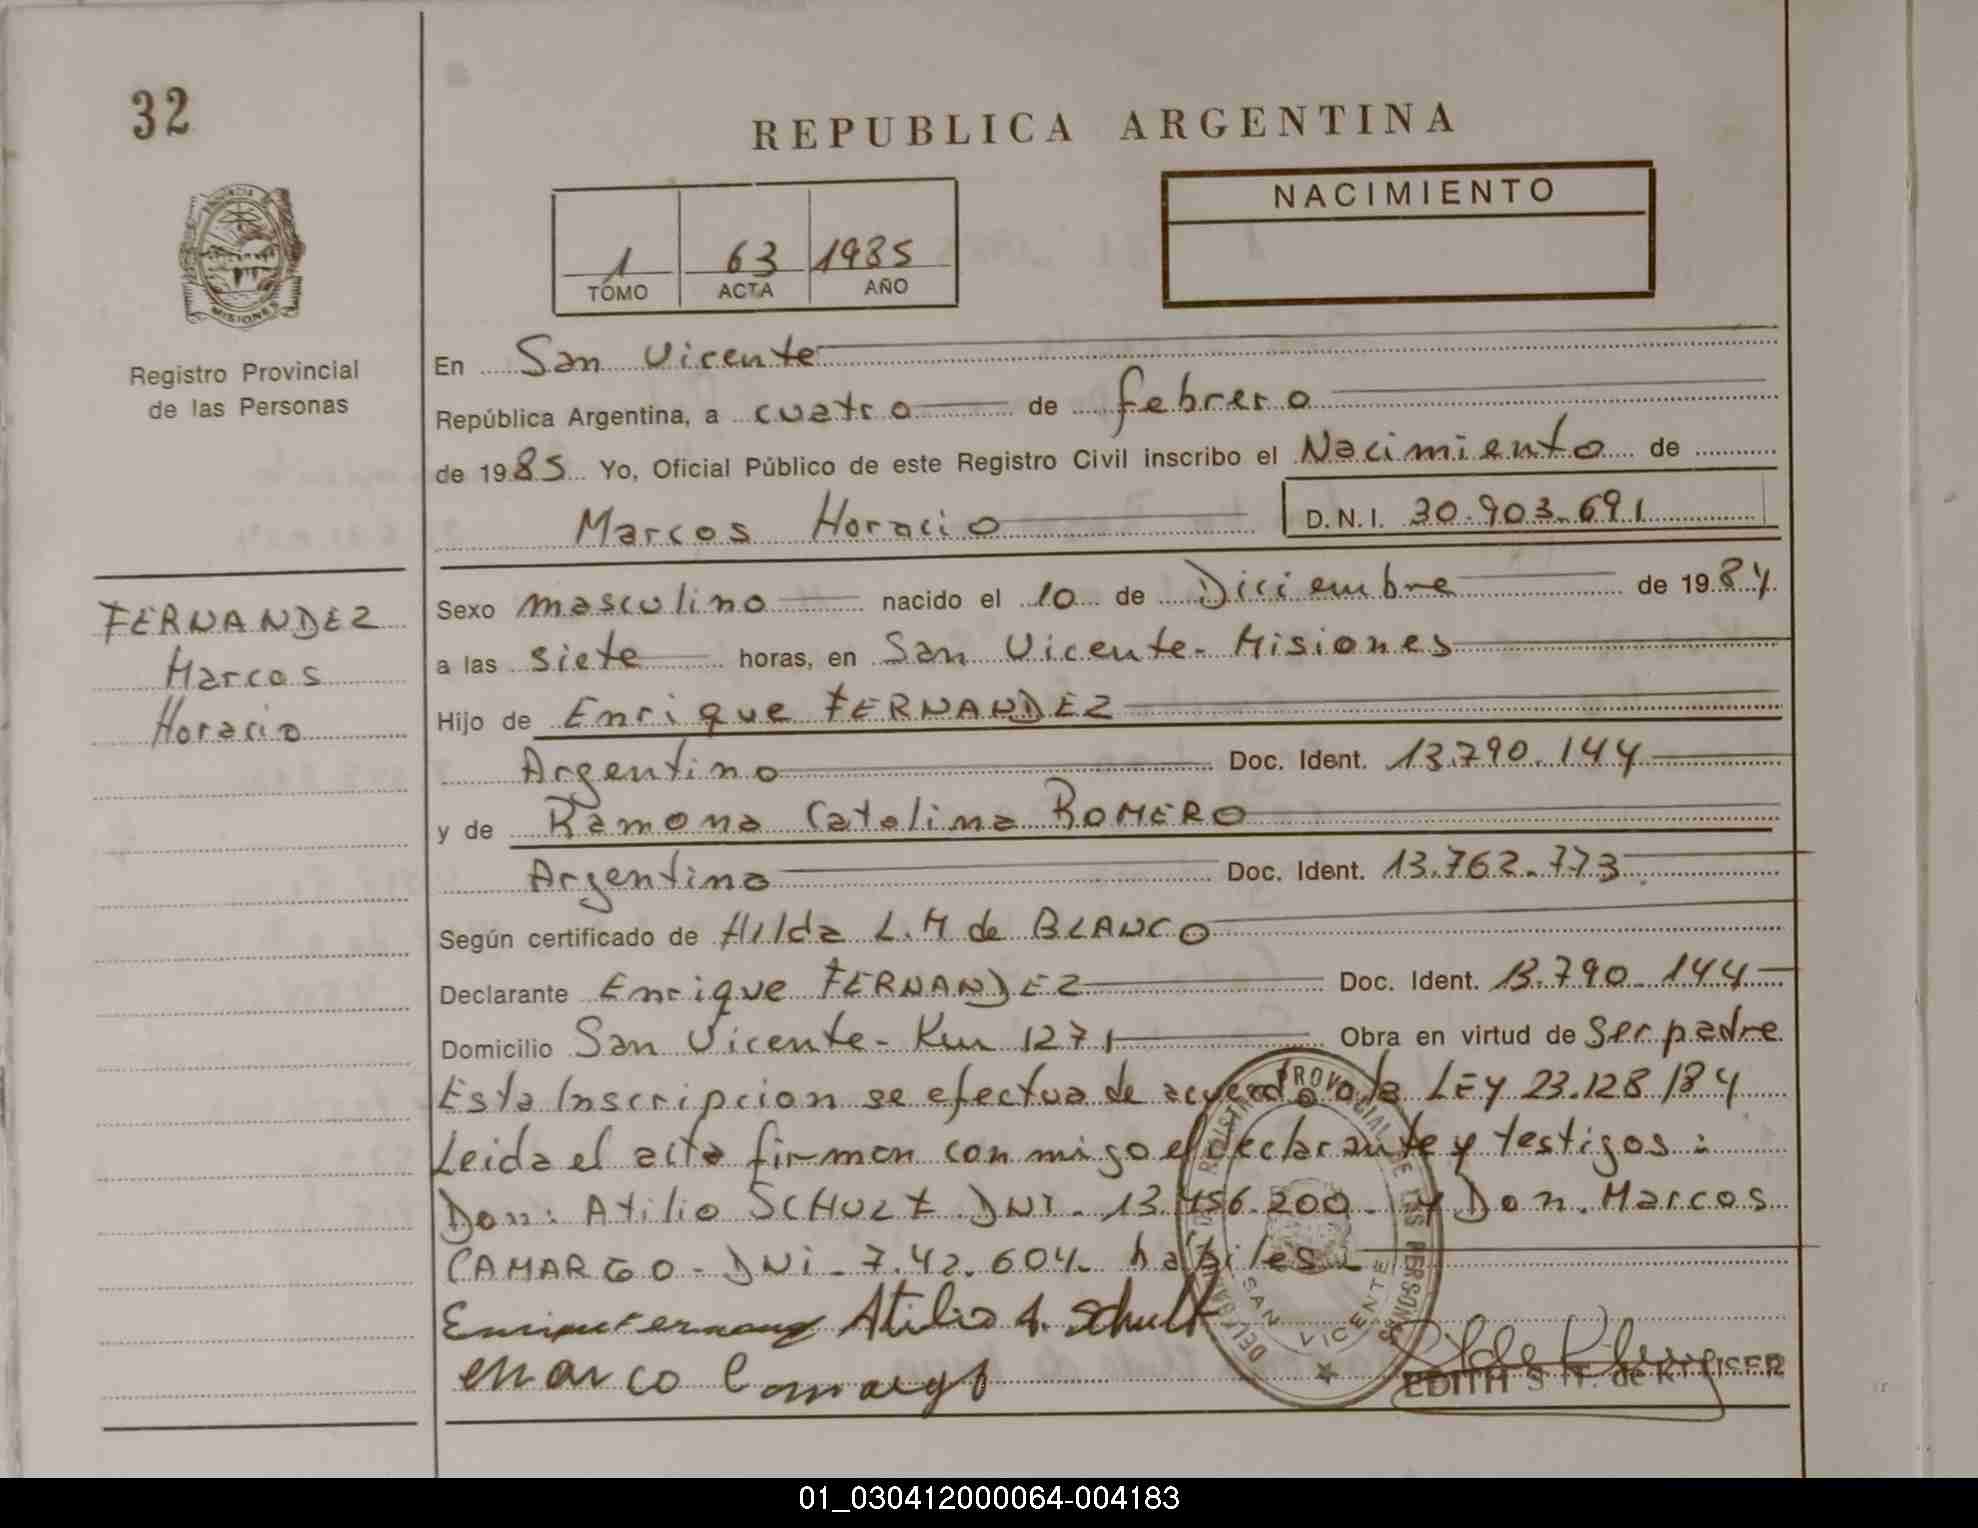 32
REPUBLICA ARGENTINA
NACIMIENTO
1 63 1985
TOMO ACTA AÑO
PROVINCIA
MISIONES
Registro Provincial
de las Personas
FERNANDEZ
Marcos
Horacio
En San Vicente
República Argentina, a cuatro de febrero
de 1985 Yo, Oficial Público de este Registro Civil inscribo el Nacimiento de
Marcos Horacio D.N.I. 30.903.691
Sexo masculino nacido el 10 de Diciembre de 1984
a las siete horas, en San Vicente - Misiones
Hijo de Enrique FERNANDEZ
Argentino Doc. Ident. 13.790.144
y de Ramona Catalina ROMERO
Argentina Doc. Ident. 13.762.773
Según certificado de Hilda L.M de BLANCO
Declarante Enrique FERNANDEZ Doc. Ident. 13.790.144
Domicilio San Vicente - Km 1271 Obra en virtud de Ser padre
Esta Inscripcion se efectua de acuerdo a la LEY 23.128/84
Leida el acta firman con migo el declarante y testigos:
Don: Atilio SCHULT DNI. 13.456.200. y Don. Marcos
CAMARGO - DNi - 7.42.604. habiles
Atilio A. Schult
Marco Camargo
SAN VICENTE
EDITH S
01_030412000064-004183